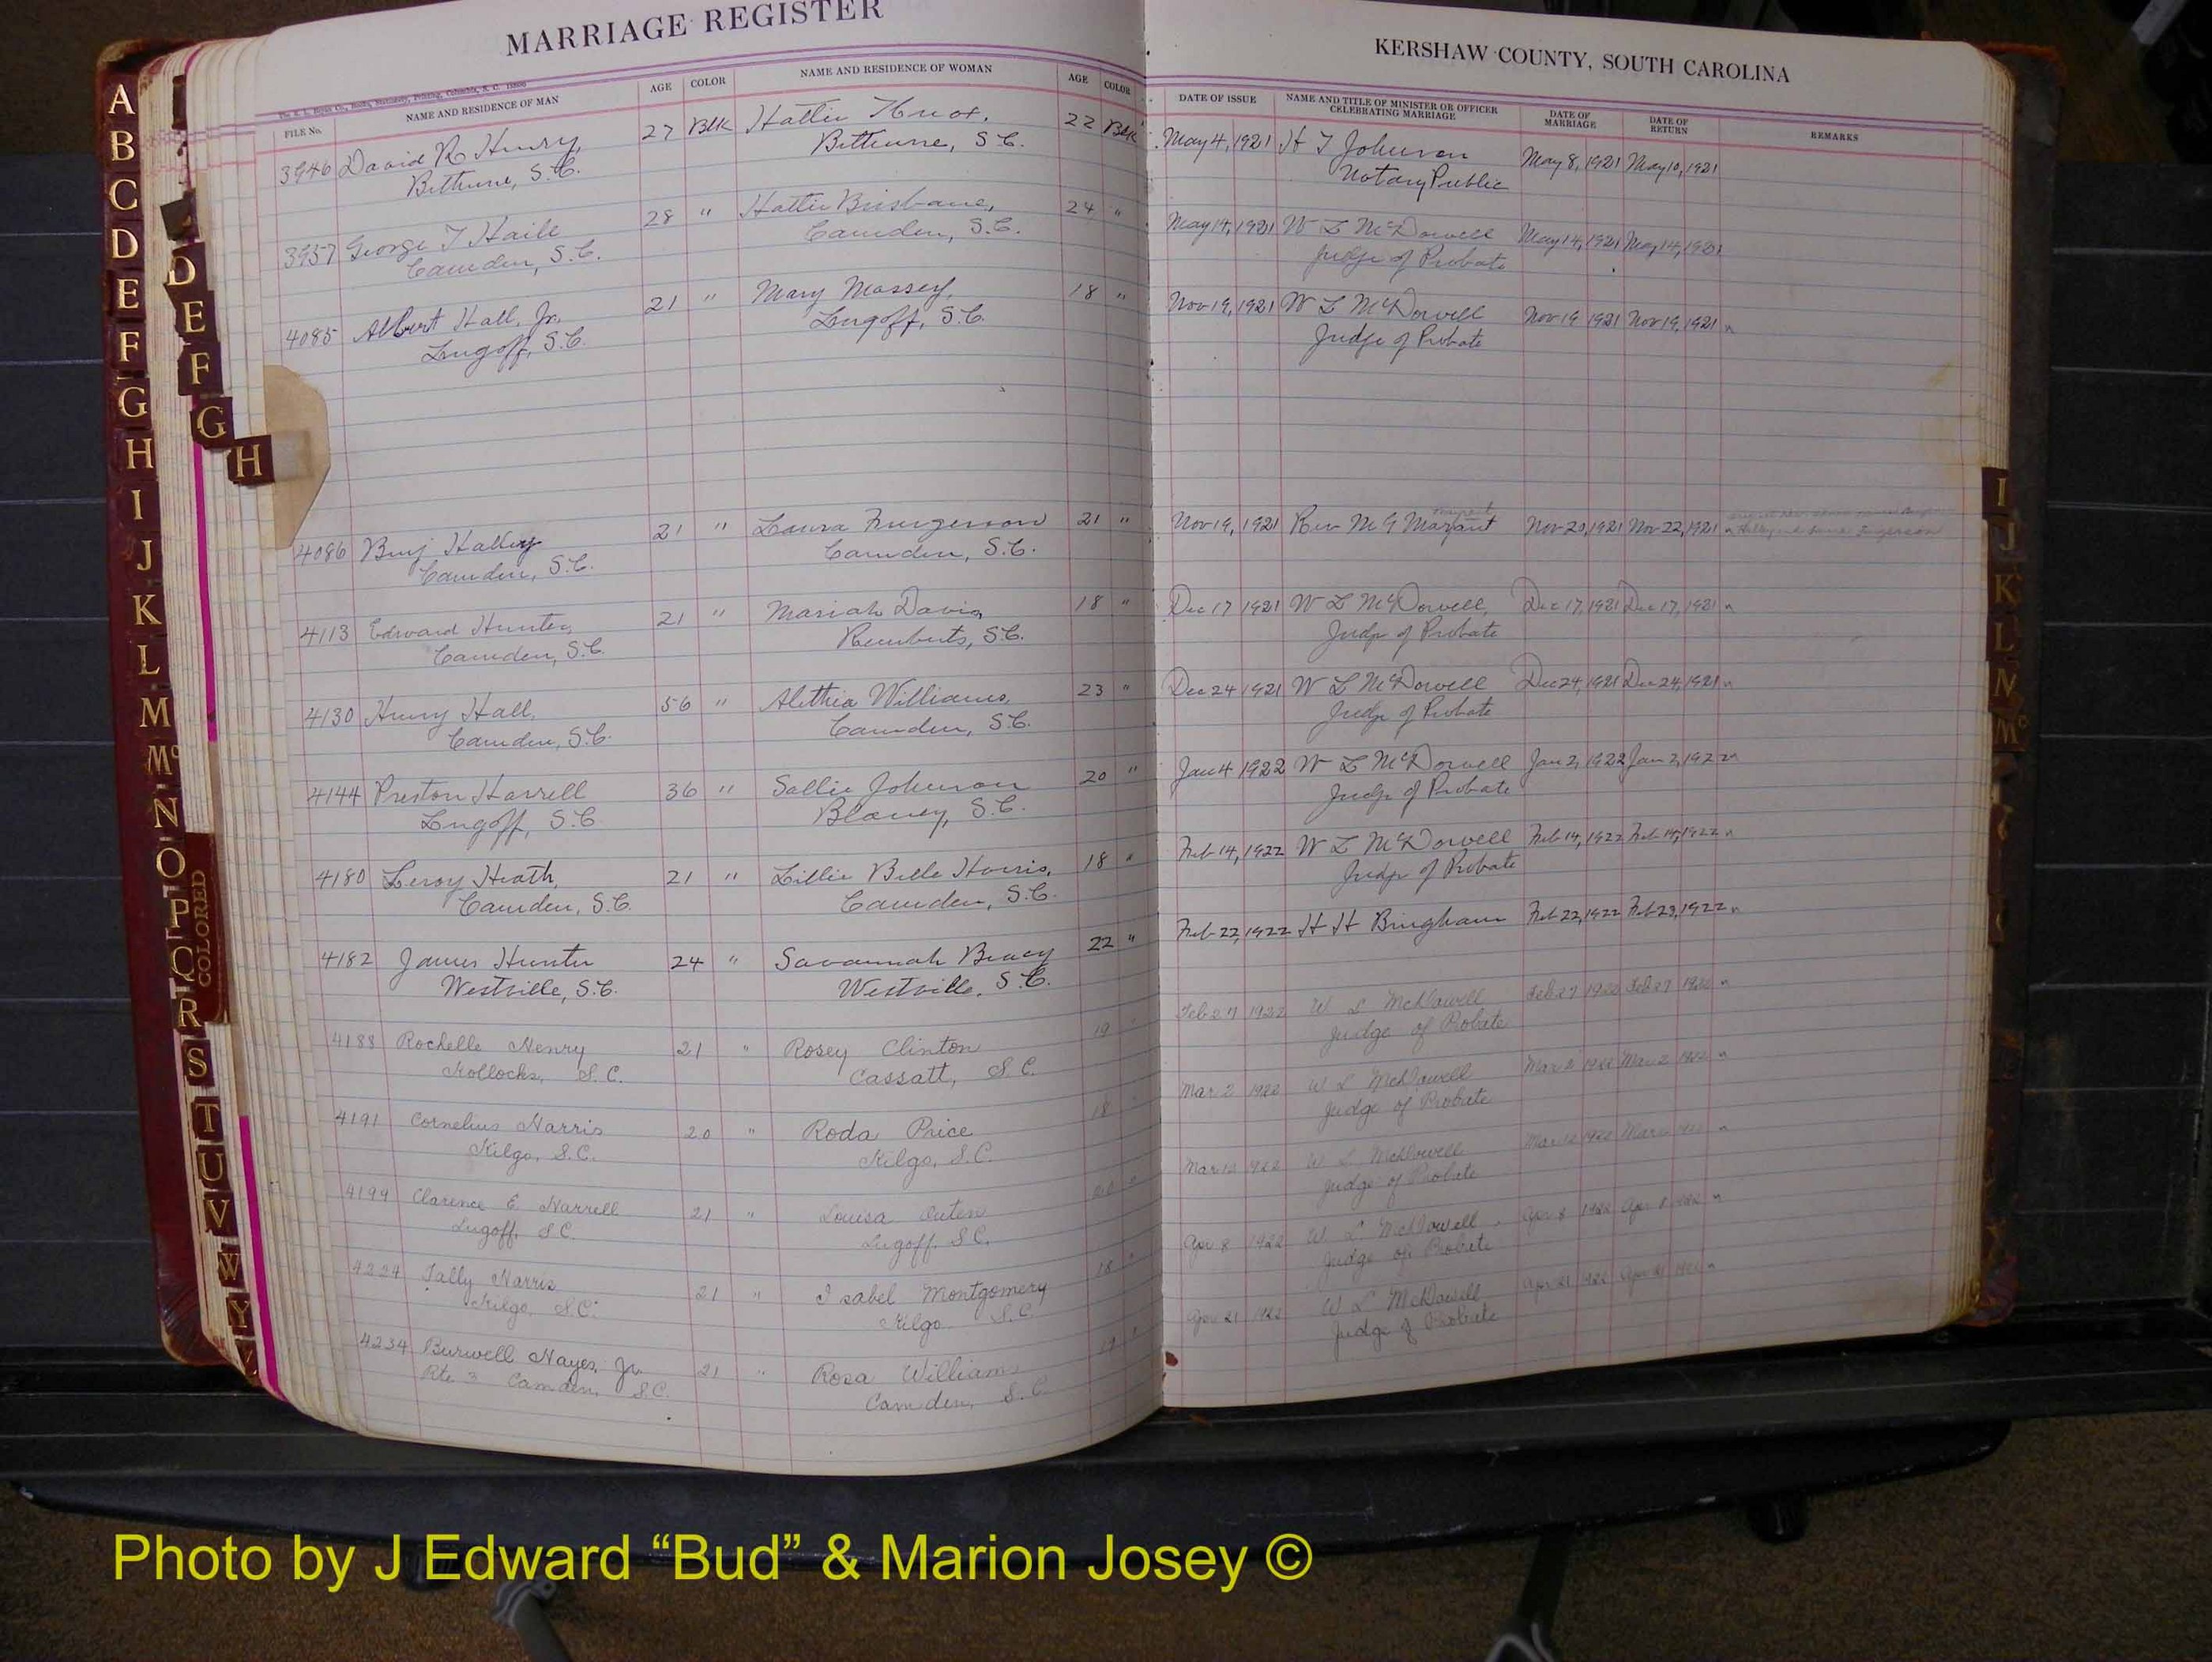 MARRIAGE REGISTER
KERSHAW COUNTY, SOUTH CAROLINA
FILE No. NAME AND RESIDENCE OF MAN AGE COLOR NAME AND RESIDENCE OF WOMAN AGE COLOR DATE OF ISSUE NAME AND TITLE OF MINISTER OR OFFICER CELEBRATING MARRIAGE DATE OF MARRIAGE DATE OF RETURN REMARKS
3946 David R Henry, 27 Blk Hattie Knox, 22 Blk May 4, 1921 H T Johnson May 8, 1921 May 10, 1921
Bethune, S.C. Bethune, S.C. Notary Public
3957 George T Haile 28 " Hattie Brisbane, 24 " May 14, 1921 W L McDowell May 14, 1921 May 14, 1921
Camden, S.C. Camden, S.C. Judge of Probate
4085 Albert Hall, Jr. 21 " Mary Massey, 18 " Nov 19, 1921 W L McDowell Nov 19 1921 Nov 19, 1921 "
Lugoff, S.C. Lugoff, S.C. Judge of Probate
4086 Benj Halley 21 " Laura Furgerson 21 " Nov 19, 1921 Rev M G Nov 20, 1921 Nov 22, 1921 "
Camden, S.C. Camden, S.C.
4113 Edward Hunter, 21 " Mariah Davis, 18 " Dec 17 1921 W L McDowell, Dec 17, 1921 Dec 17, 1921 "
Camden, S.C. Remberts, S.C. Judge of Probate
4130 Henry Hall, 56 " Alethia Williams, 23 " Dec 24 1921 W L McDowell Dec 24, 1921 Dec 24, 1921 "
Camden, S.C. Camden, S.C. Judge of Probate
4144 Preston Harrell 36 " Sallie Johnson 20 " Jan 4 1922 W L McDowell Jan 2, 1922 Jan 2, 1922 "
Lugoff, S.C. Blaney, S.C. Judge of Probate
4180 Leroy Heath, 21 " Lillie Belle Harris, 18 " Feb 14, 1922 W L McDowell Feb 14, 1922 Feb 14, 1922 "
Camden, S.C. Camden, S.C. Judge of Probate
4182 James Hunter 24 " Savannah Bracy 22 " Feb 22, 1922 H H Bingham Feb 22, 1922 Feb 23, 1922 "
Westville, S.C. Westville, S.C.
4188 Rochelle Henry 21 " Rosey Clinton 19 " Feb 27 1922 W L McDowell Feb 27 1922 Feb 27 1922 "
Kollocks, S.C. Cassatt, S.C. Judge of Probate
4191 Cornelius Harris 20 " Roda Price 18 " Mar 2 1922 W L McDowell Mar 2 1922 Mar 2 1922 "
Kilgo, S.C. Kilgo, S.C. Judge of Probate
4199 Clarence E Harrell 21 " Louisa Outen 1922 W L McDowell "
Lugoff, S.C. Lugoff, S.C. Judge of Probate
4224 Tally Harris 21 " Isabel Montgomery 18 " Apr 8 1922 W L McDowell Apr 8 1922 Apr 8 1922 "
Kilgo, S.C. Kilgo S.C. Judge of Probate
4234 Burwell Hayes, Jr. 21 " Rosa Williams 19 " Apr 21 1922 W L McDowell Apr 21 1922 Apr 21 1922 "
Rte 3 Camden, S.C. Camden, S.C. Judge of Probate
A
B
C
D
E
F
G
H
I
J
K
L
M
Mc
N
O
P
Q
R
S
T
U
V
W
Y
COLORED
D
E
F
G
H
I
J
K
L
Photo by J Edward “Bud” & Marion Josey ©